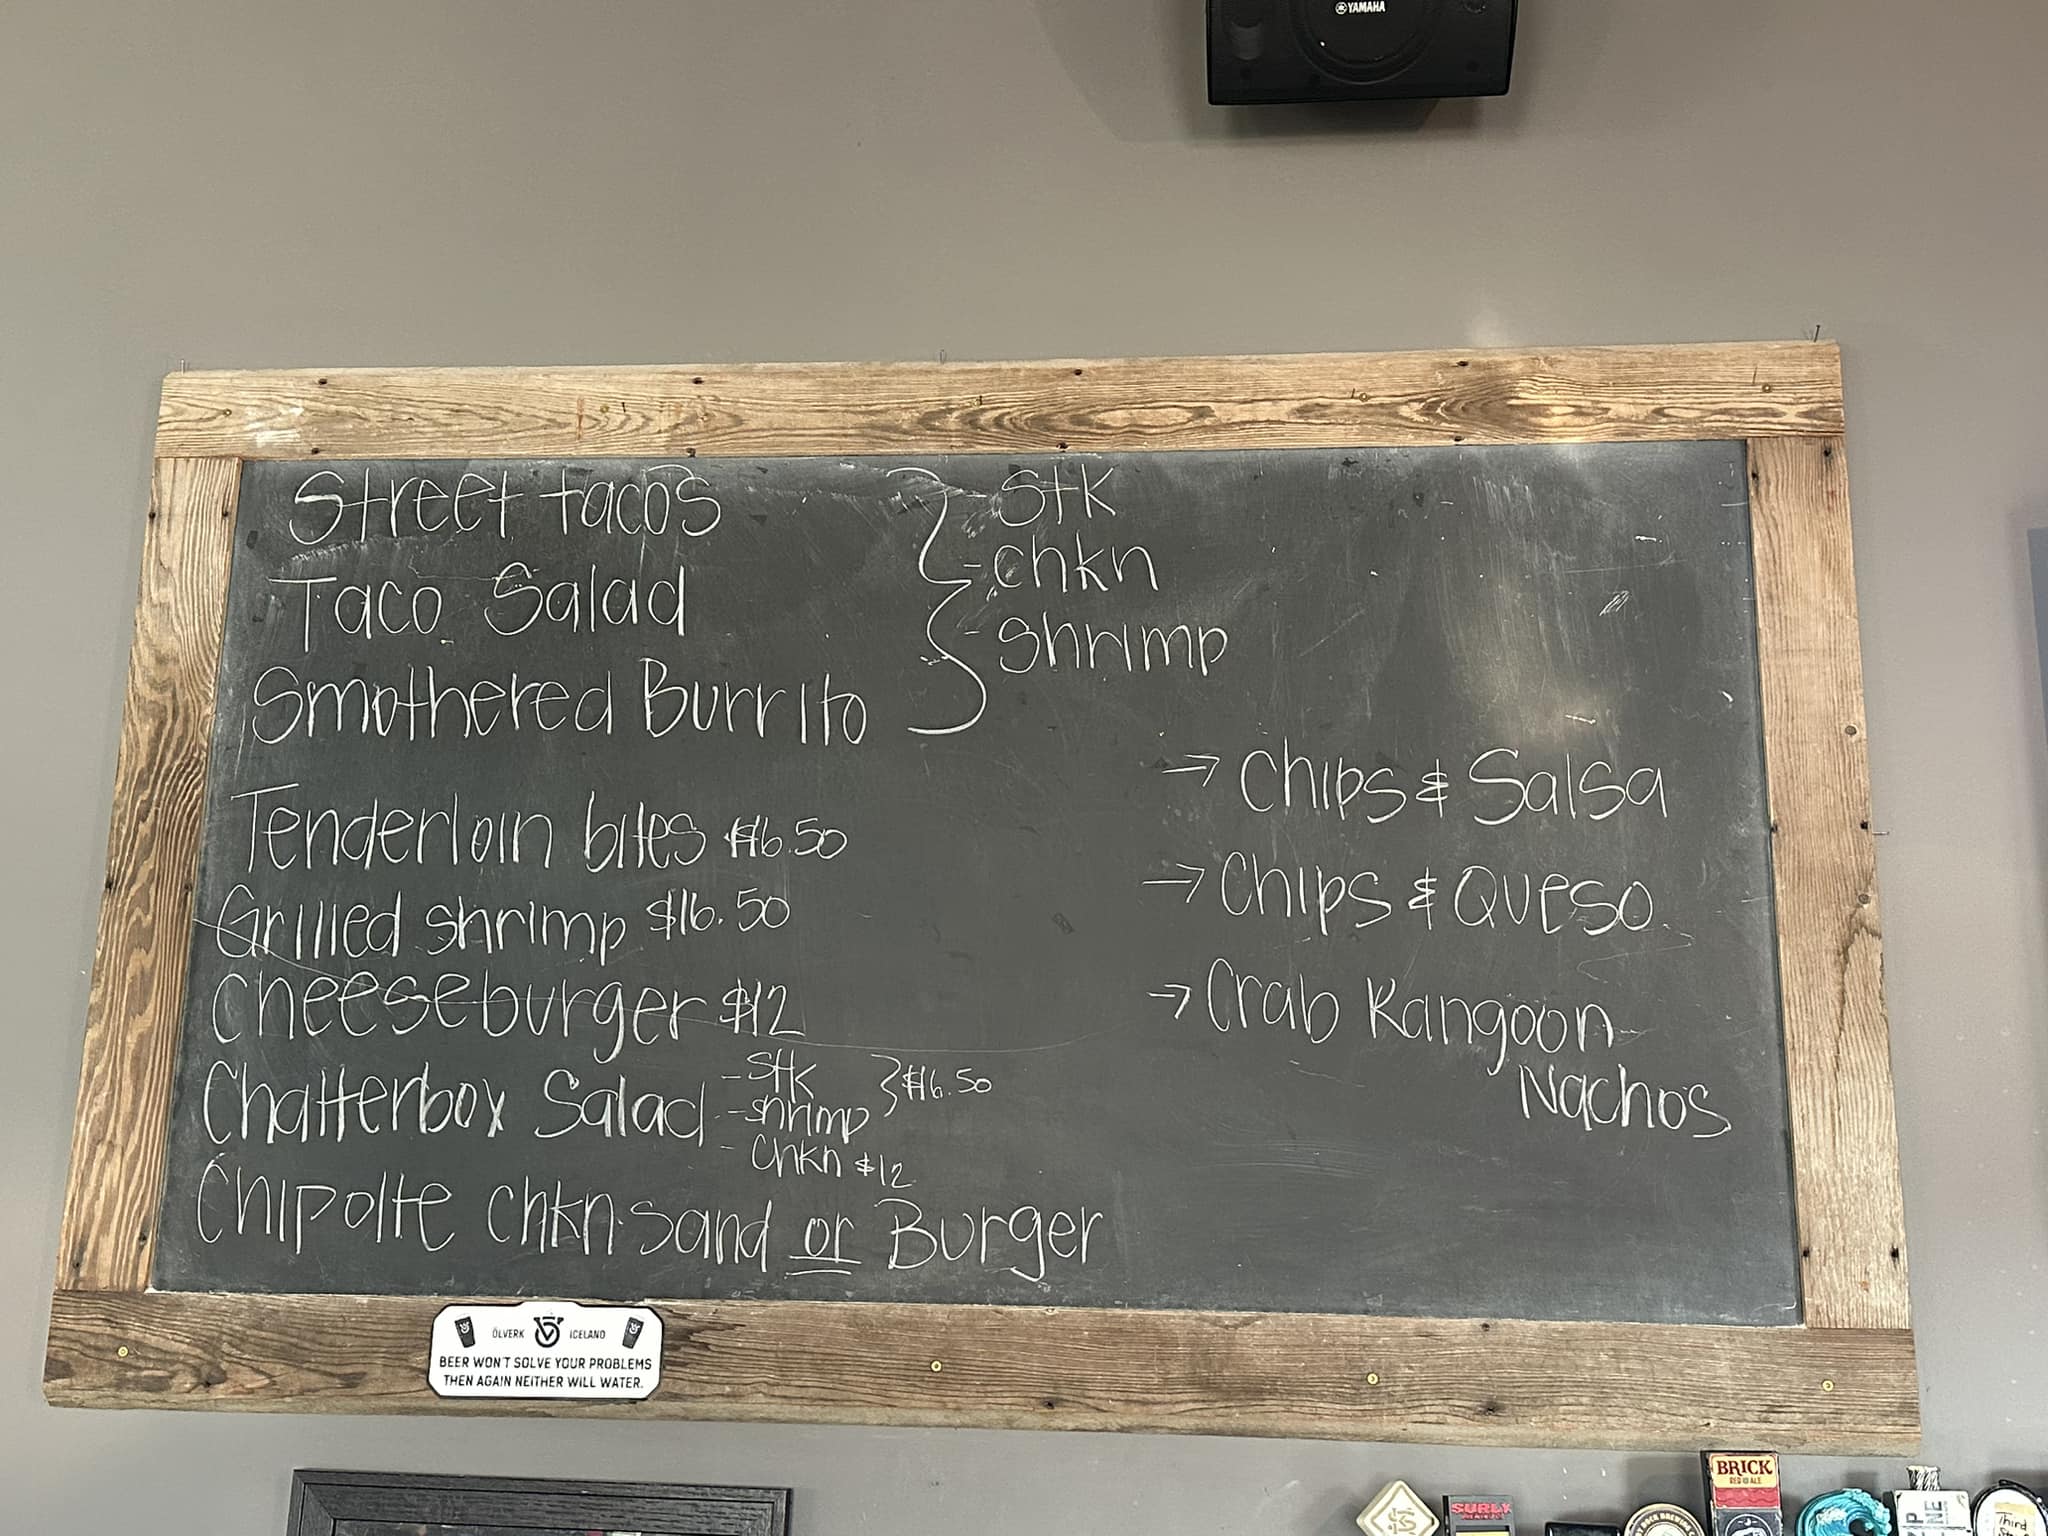 YAMAHA
Street tacos
Taco Salad
Smothered Burrito
- Stk
- chkn
- shrimp
Tenderloin bites $16.50
Grilled shrimp $16.50
Cheeseburger $12
Chatterbox Salad
- Stk
- shrimp
$16.50
- Chkn $12
Chipolte Chkn Sand or Burger
→ Chips & Salsa
→ Chips & Queso
→ Crab Rangoon
Nachos
ÖLVERK ICELAND
BEER WON'T SOLVE YOUR PROBLEMS
THEN AGAIN NEITHER WILL WATER.
BRICK
RED ALE
SURLY
Third